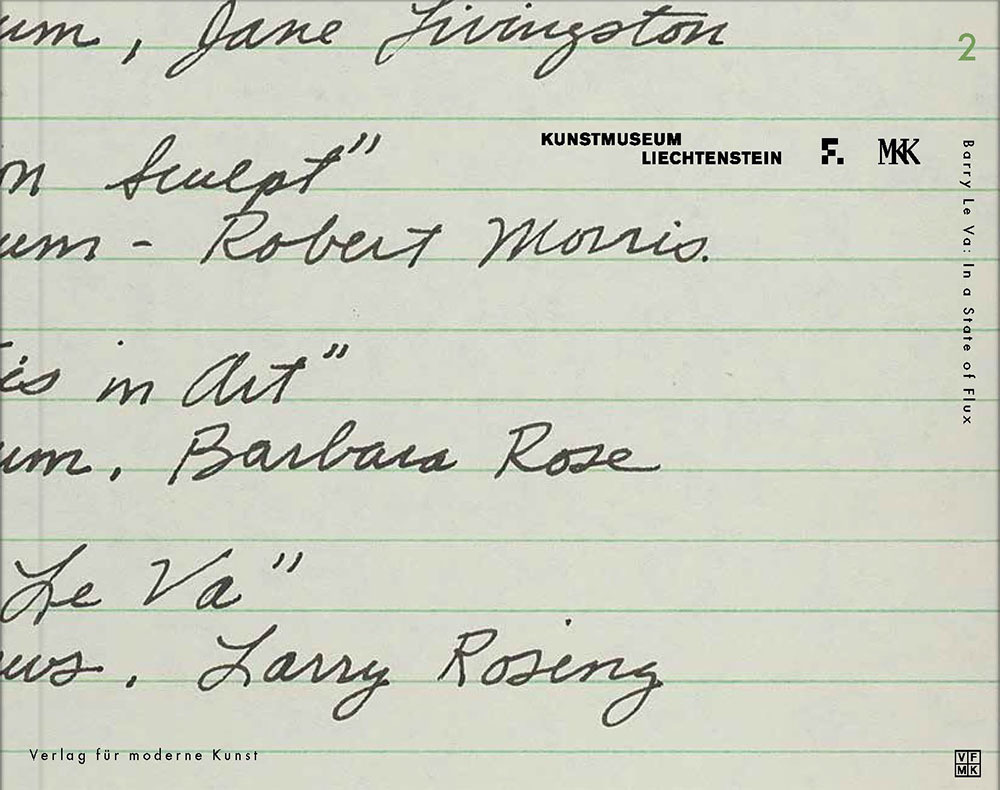 um, Jane Livingston
2
KUNSTMUSEUM
LIECHTENSTEIN
F. MKK
on Sculpt"
um - Robert Morris.
Barry Le Va: In a State of Flux
is in Art"
um, Barbara Rose
Le Va"
ws. Larry Rosing
Verlag für moderne Kunst
VF
MK